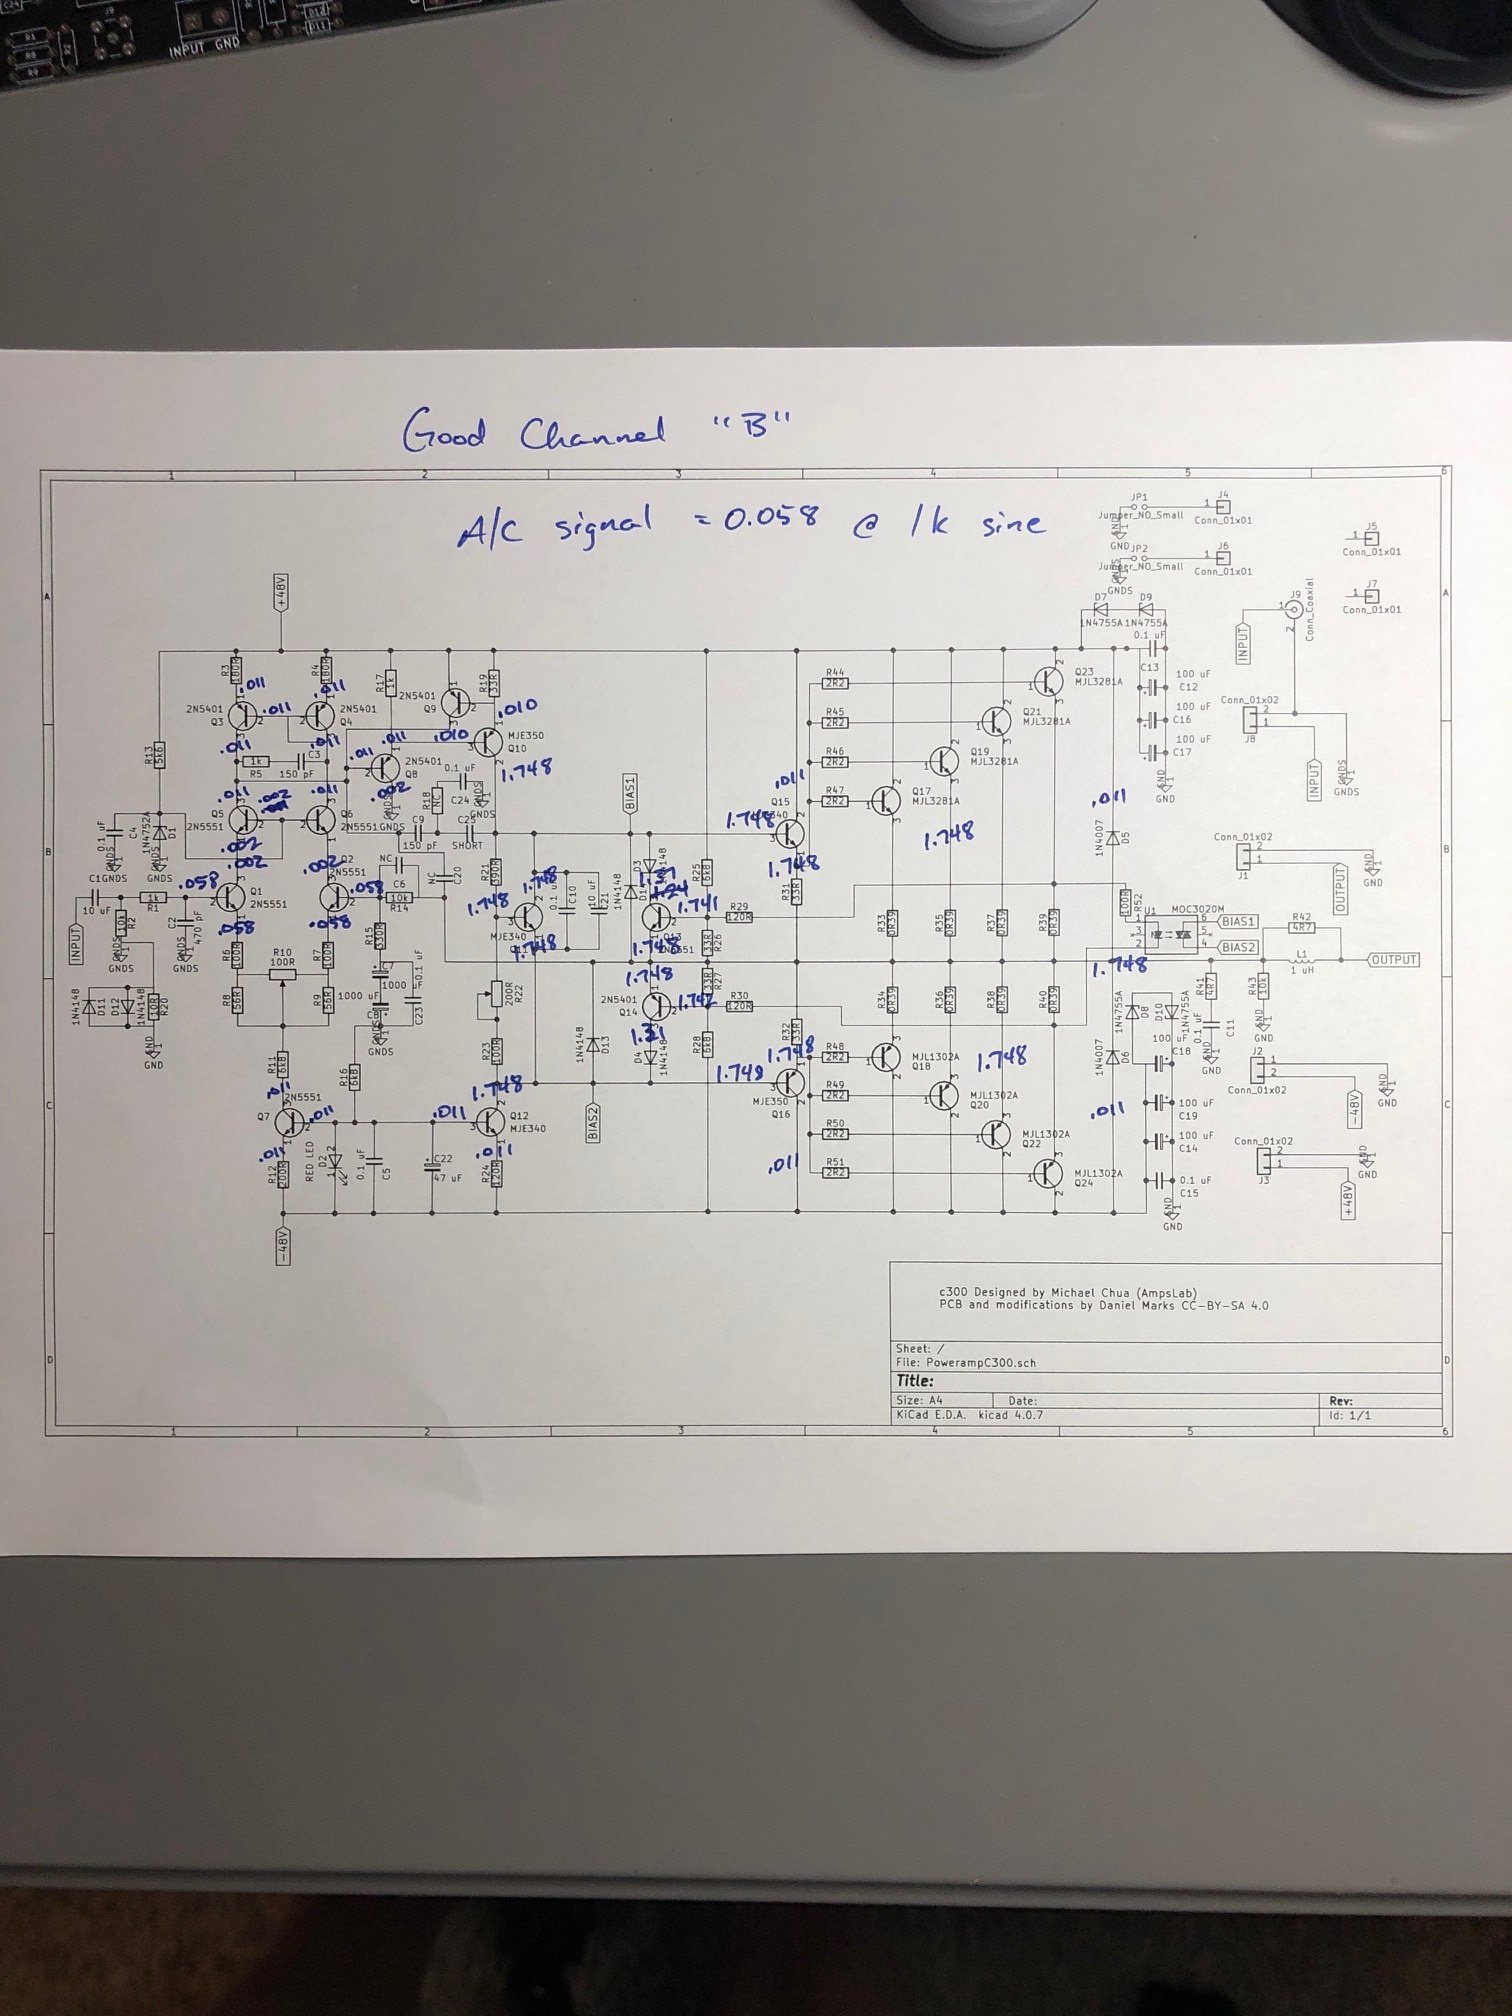 INPUT GND
Good Channel "B"
A/C signal = 0.058 @ 1k sine
1 2 3 4 5 6
JP1
Jumper_NO_Small
J4
Conn_01x01
GND
JP2
Jumper_NO_Small
J6
Conn_01x01
GNDS
J5
Conn_01x01
J7
Conn_01x01
J9
Conn_Coaxial
INPUT
+48V
A
D7 D9
1N4755A 1N4755A
0.1 uF
C13
100 uF
C12
100 uF
C16
100 uF
C17
GND
Conn_01x02
J8
INPUT
GNDS
R3
180R
R4
180R
.011
.011
2N5401
Q3
.011
2N5401
Q4
.011
.011
R17
1k
2N5401
Q9
R19
33R
.010
MJE350
Q10
.010
.011
.011
2N5401
Q8
1.748
.002
R13
5k6
R5
1k
C3
150 pF
.011
.002
.011
Q5
2N5551
Q6
2N5551
.002
.002
.002
0.1 uF
C24
R18
NC
GNDS
GNDS
C9
150 pF
C25
SHORT
BIAS1
R44
2R2
R45
2R2
R46
2R2
R47
2R2
Q23
MJL3281A
Q21
MJL3281A
Q19
MJL3281A
Q17
MJL3281A
1.748
.011
Q15
1.748
1.748
R31
33R
.011
1N4007
D5
B
C4
0.1 uF
1N4752A
D1
GNDS
GNDS
C1
10 uF
R1
1k
R2
10k
C2
470 pF
.058
Q1
2N5551
.058
Q2
2N5551
.058
.058
NC
C6
10k
R14
NC
C20
R15
330R
INPUT
GNDS
GNDS
R6
100R
R10
100R
R7
100R
R8
56R
R9
56R
C7
1000 uF
1000 uF
C8
0.1 uF
C23
GNDS
R21
390R
1.748
1.748
MJE340
1.748
0.1 uF
C10
10 uF
C21
1N4148
D3
1.741
1.748
R25
6k8
R26
33R
R29
120R
1.748
2N5401
Q14
1.742
R27
33R
R30
120R
1.21
D4
1N4148
R28
6k8
1N4148
D13
R22
200R
R23
100R
1.748
R33
0R39
R35
0R39
R37
0R39
R39
0R39
R34
0R39
R36
0R39
R38
0R39
R40
0R39
R52
100R
U1
MOC3020M
BIAS1
BIAS2
1.748
R42
4R7
L1
1 uH
OUTPUT
Conn_01x02
J1
GND
OUTPUT
R41
4R7
R43
10k
0.1 uF
C11
GND
GND
1N4148
D11
D12
1N4148
R20
10R
GND
R11
6k8
.011
2N5551
Q7
.011
.011
R12
200R
RED LED
D2
0.1 uF
C5
R16
6k8
C22
47 uF
.011
Q12
MJE340
.011
R24
120R
BIAS2
R32
33R
1.748
1.748
MJE350
Q16
.011
R48
2R2
R49
2R2
R50
2R2
R51
2R2
MJL1302A
Q18
MJL1302A
Q20
MJL1302A
Q22
MJL1302A
Q24
1.748
.011
1N4007
D6
1N4755A
D8
D10
1N4755A
100 uF
C18
100 uF
C19
100 uF
C14
0.1 uF
C15
GND
J2
Conn_01x02
-48V
GND
Conn_01x02
J3
+48V
GND
C
-48V
D
c300 Designed by Michael Chua (AmpsLab)
PCB and modifications by Daniel Marks CC-BY-SA 4.0
Sheet: /
File: PowerampC300.sch
Title:
Size: A4 Date: Rev:
KiCad E.D.A. kicad 4.0.7 Id: 1/1
1 2 3 4 5 6